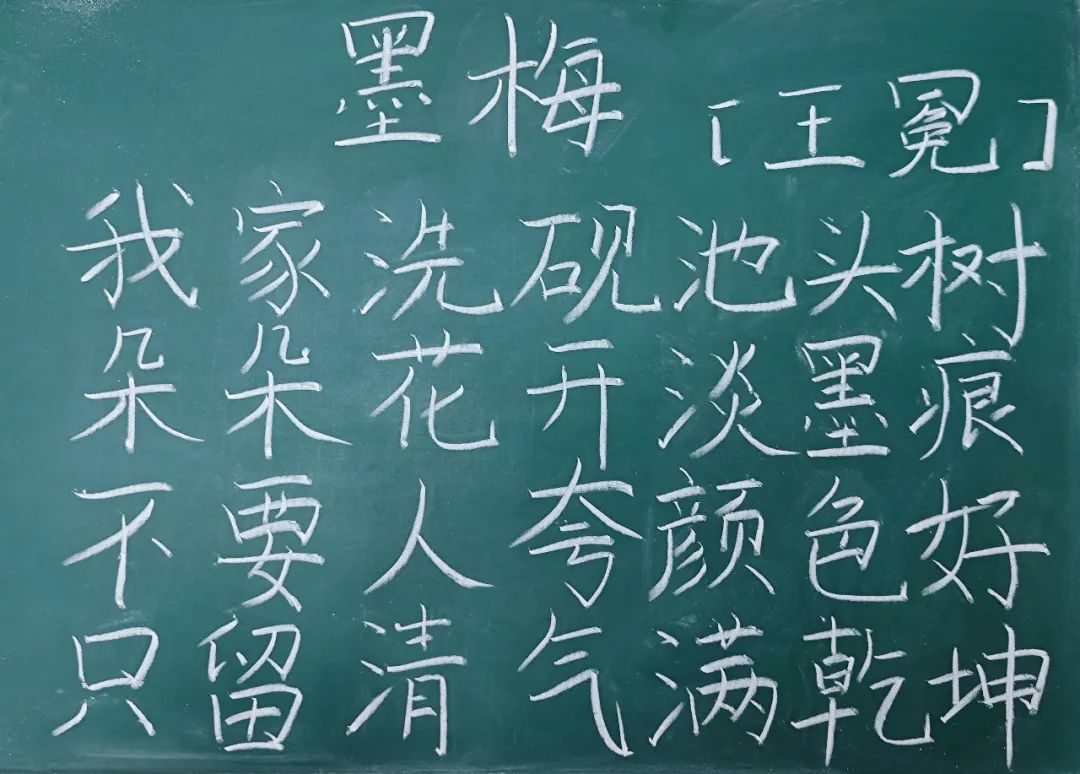 墨梅 [王冕]
我家洗砚池头树
朵朵花开淡墨痕
不要人夸颜色好
只留清气满乾坤